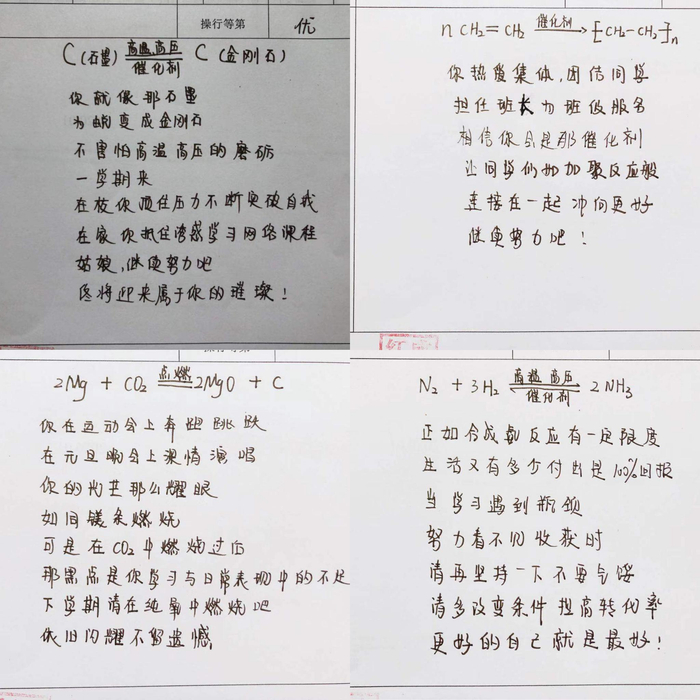 操行等第
优
C(石墨) 高温高压 催化剂 C(金刚石)
你就像那石墨
为蜕变成金刚石
不害怕高温高压的磨砺
一学期来
在校你顶住压力不断突破自我
在家你抵住诱惑学习网络课程
姑娘,继续努力吧
终将迎来属于你的璀璨!
nCH2=CH2 催化剂 → [CH2-CH2]n
你热爱集体,团结同学
担任班长为班级服务
相信你会是那催化剂
让同学们如加聚反应般
连接在一起冲向更好
继续努力吧!
2Mg + CO2 点燃 2MgO + C
你在运动会上奔跑跳跃
在元旦晚会上深情演唱
你的光芒那么耀眼
如同镁条燃烧
可是在CO2中燃烧过后
那黑点是你学习与日常表现中的不足
下学期请在纯氧中燃烧吧
依旧闪耀不留遗憾
N2 + 3H2 高温 高压 催化剂 2NH3
正如合成氨反应有一定限度
生活又有多少付出是100%回报
当学习遇到瓶颈
努力看不见收获时
请再坚持一下不要气馁
请多改变条件提高转化率
更好的自己就是最好!